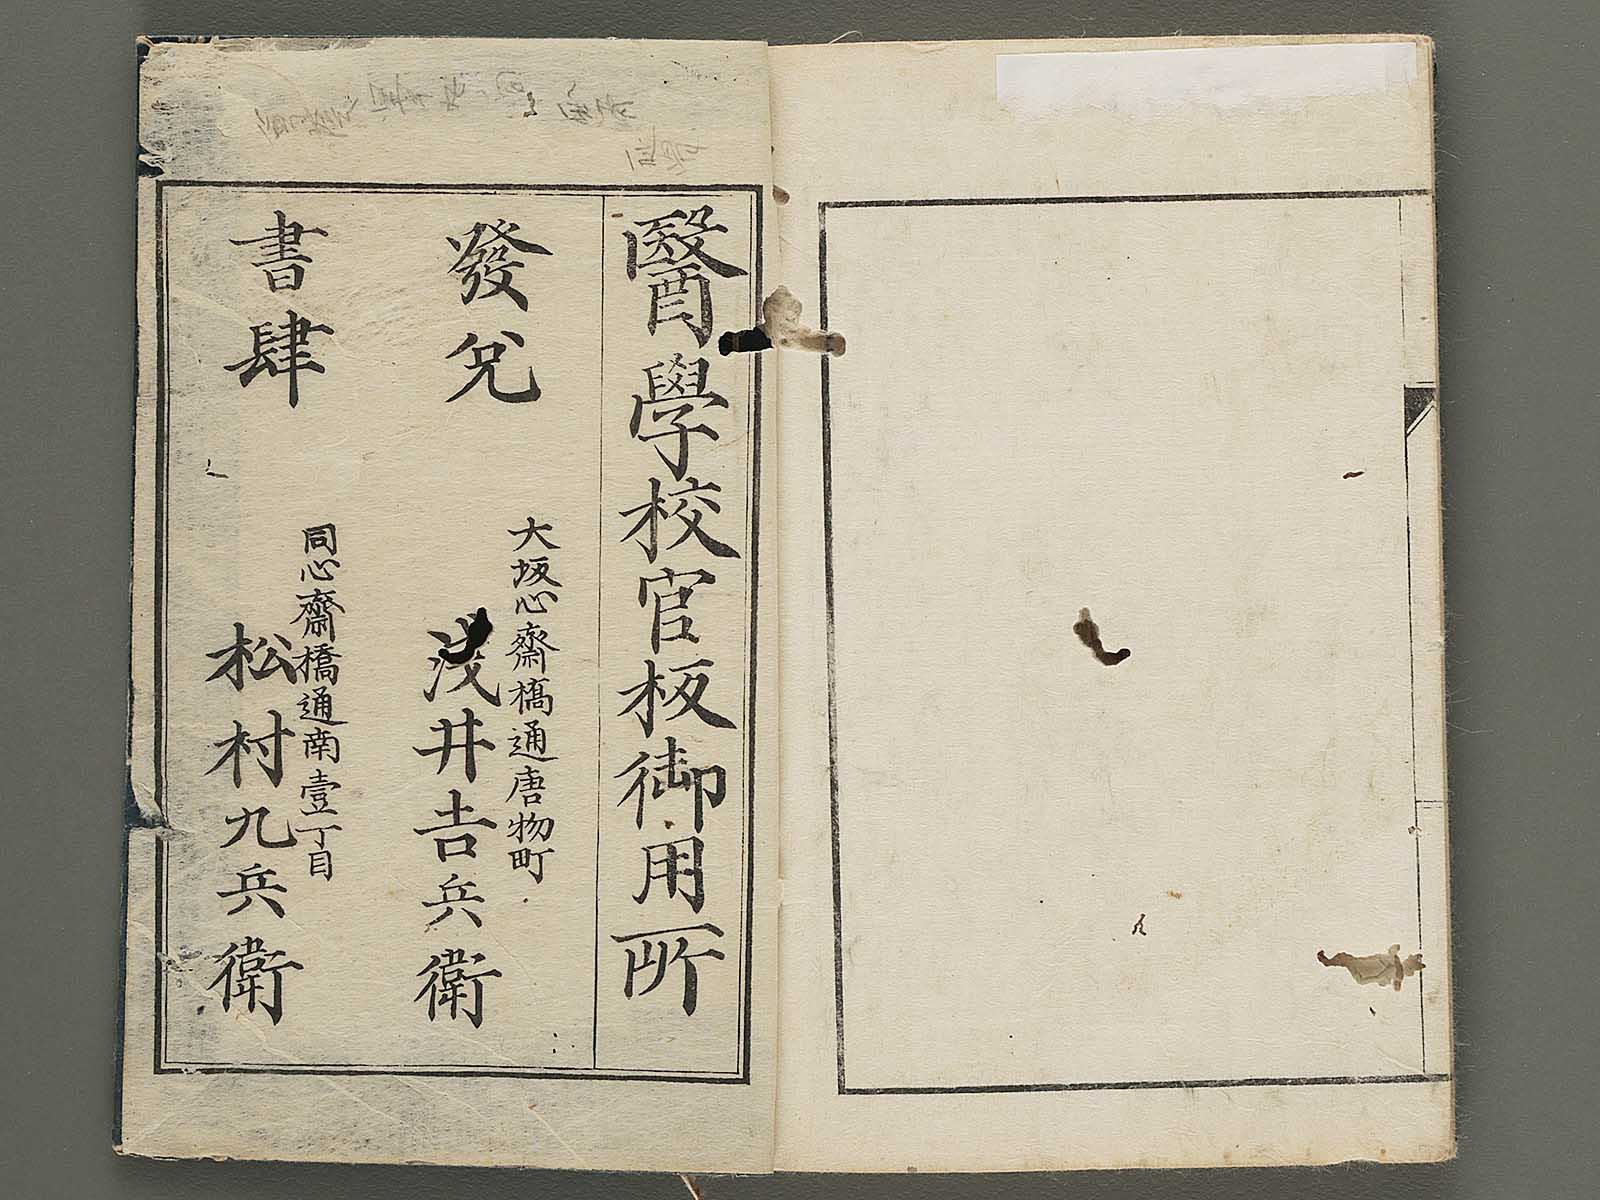 醫學校官板御用所
發兌
大坂心齋橋通唐物町
浅井吉兵衛
書肆
同心齋橋通南壹丁目
松村九兵衛